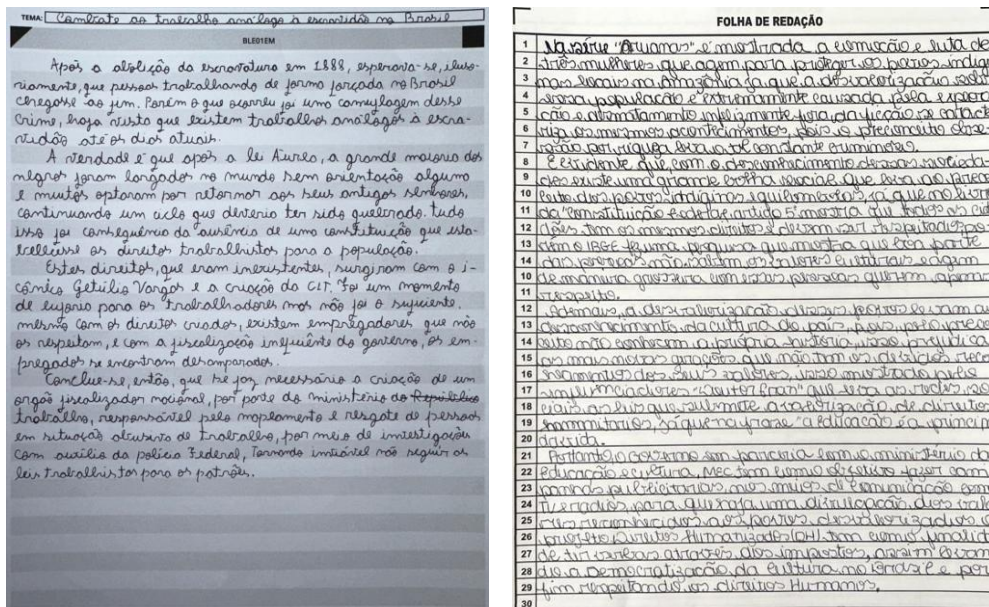 TEMA: Combate ao trabalho análogo à escravidão no Brasil
BLE01EM
Após a abolição da escravatura em 1888, esperava-se, iluso-
riamente, que pessoas trabalhando de forma forçada no Brasil
chegasse ao fim. Porém o que ocorreu foi uma camuflagem desse
crime, haja visto que existem trabalhos análogos à escra-
vidão até os dias atuais.
A verdade é que após a lei Áurea, a grande maioria dos
negros foram largados no mundo sem orientação alguma
e muitos optaram por retornar aos seus antigos senhores,
continuando um ciclo que deveria ter sido quebrado. tudo
isso foi consequência da ausência de uma constituição que esta-
belecesse os direitos trabalhistas para a população.
Estes direitos, que eram inexistentes, surgiram com o i-
cônico Getúlio Vargas e a criação da CLT. Foi um momento
de euforia para os trabalhadores mas não foi o suficiente.
mesmo com os direitos criados, existem empregadores que não
os respeitam, e com a fiscalização ineficiente do governo, os em-
pregados se encontram desamparados.
Conclue-se, então, que se faz necessário a criação de um
orgão fiscalizador nacional, por parte do ministério do República
trabalho, responsável pelo mapeamento e resgate de pessoas
em situação abusiva de trabalho, por meio de investigações
com auxílio da polícia Federal, tornando inviável não seguir as
leis trabalhistas para os patrões.
FOLHA DE REDAÇÃO
1 Na série "Aruanas" é mostrada a comoção e luta de
2 três mulheres que agem para proteger os povos indíge
3 nas locais na Amazônia já que a desvalorização sobre
4 essa população é extremamente causada pela explora
5 ção e infelizmente fora da ficção se
6 os mesmos acontecimentos, pois o preconceito
7 constante
8 É evidente que com o desconhecimento dessas socieda
9 des existe uma grande bolha social que leva ao precon
10 ceito dos povos indígenas e quilombolas, já que no livro
11 da constituição federal artigo 5º mostra que todos os cid
12 dãos tem os mesmos direitos e devem ser respeitados, po
13 dém o IBGE fez uma pesquisa que mostra que boa parte
14 das pessoas não os valores culturais e agem
10 de maneira grosseira com essas pessoas que apenas
11 respeito.
12 Ademais, a desvalorização desses povos levam ao
13 desconhecimento da cultura do país, pois pelo precon
14 ceito não conhecem a própria história, isso prejudica
15 as mais novas gerações que não tem os devidos reco
16 nhecimentos dos seus valores, isso mostrado pelo
17 influenciadores que leva as redes so
18 ciais a valorização de direitos
19 já que na frase "a educação é a
20
21 Portanto, o governo em parceria com o ministério da
22 educação e cultura, MEC, tem como objetivo fazer cam
23 panhas publicitárias, nos meios de comunicação com
24 para que haja uma divulgação dos valo
25 res reconhecidos aos povos desvalorizados o
26 projeto Direitos Humanizados (DH) tem como finalid
27 de através dos impostos, assim levan
28 do a democratização da cultura no Brasil e por
29 fim respeitando os direitos Humanos.
30